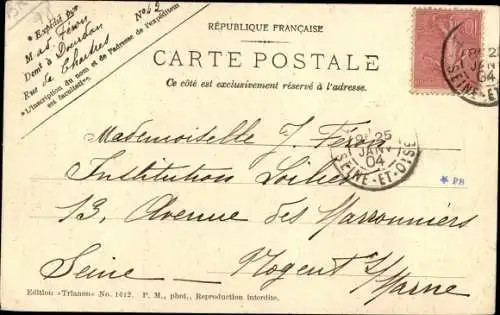 No 2
* Expédié par
M ad. Feron
Demt à Dourdan
Rue de Chartres
*L'inscription du nom et de l'adresse de l'expéditeur
est facultative.
RÉPUBLIQUE FRANÇAISE
CARTE POSTALE
Ce côté est exclusivement réservé à l'adresse.
25
JANV
04
SEINE-ET-
Mademoiselle J. Feron
25
JANV
04
SEINE-ET-OISE
Institution
* PB
13, Avenue des Marronniers
Seine — Nogent s/ Marne
Edition «Trianon» No. 1612. P. M., phot., Reproduction interdite.